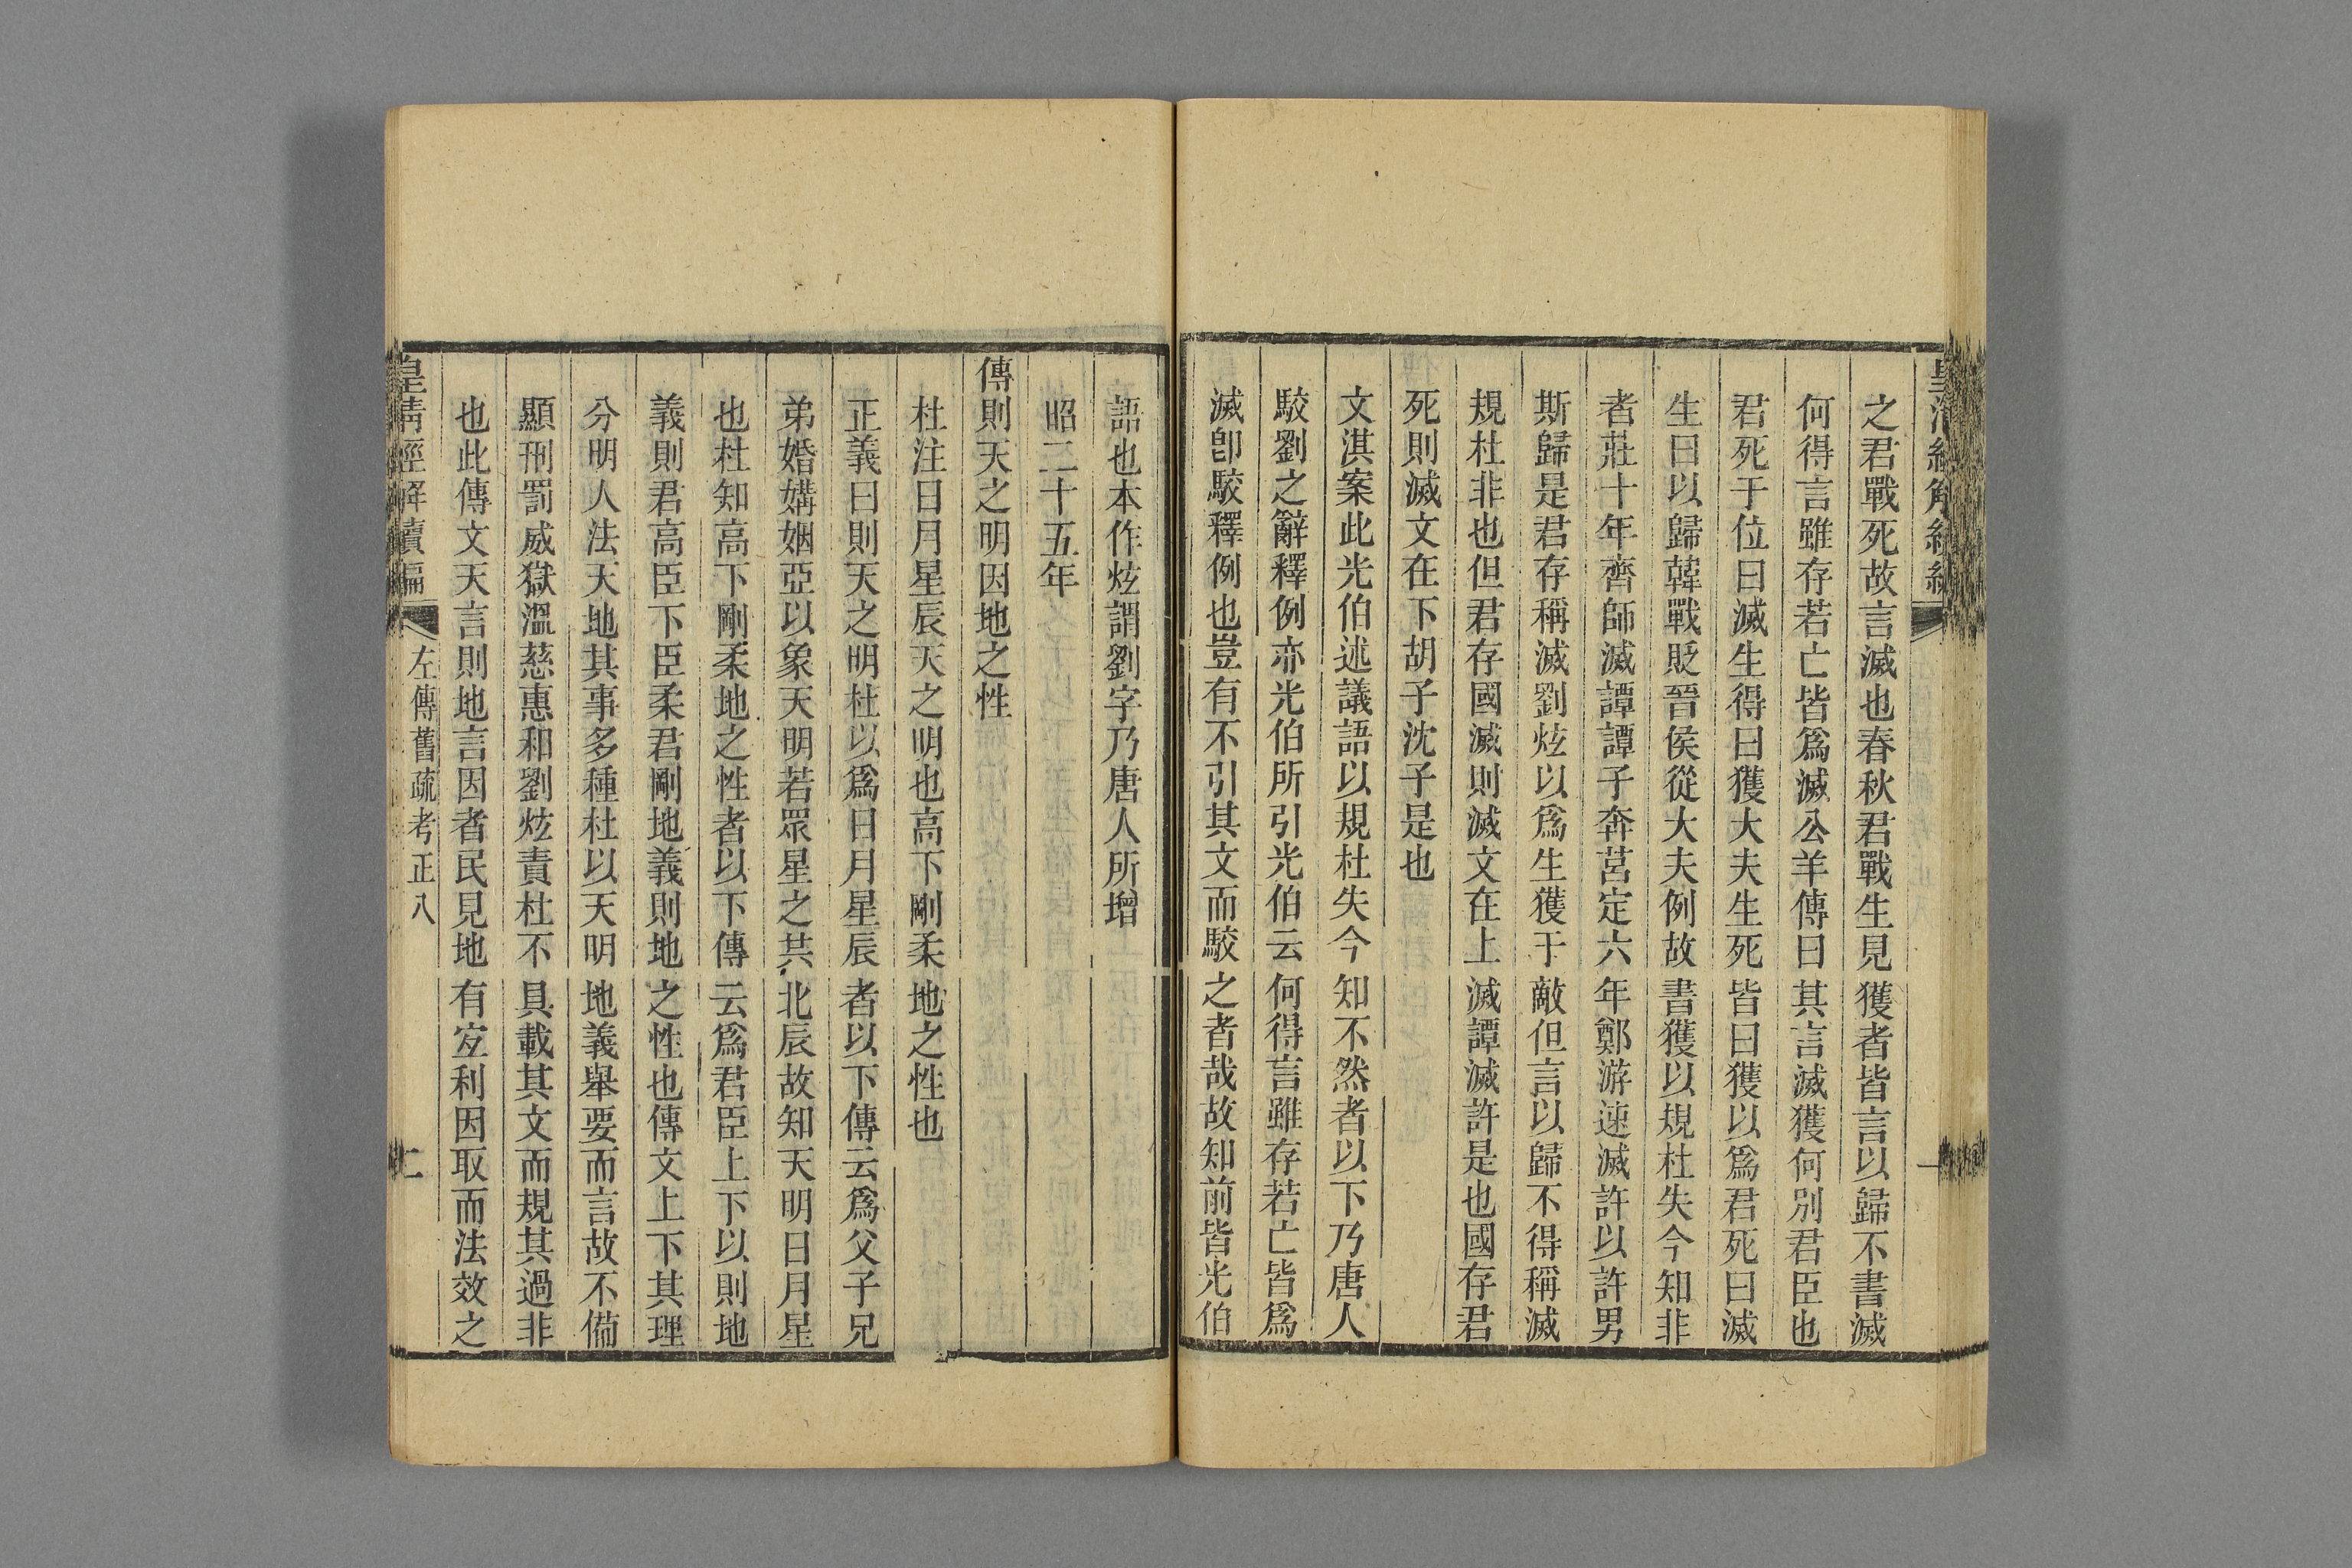 之君戰死故言滅也春秋君戰生見獲者皆言以歸不書滅
何得言雖存若亡皆爲滅公羊傳曰其言滅獲何別君臣也
君死于位曰滅生得曰獲大夫生死皆曰獲以爲君死曰滅
生曰以歸韓戰貶晉侯從大夫例故書獲以規杜失今知非
者莊十年齊師滅譚譚子奔莒定六年鄭游速滅許以許男
斯歸是君存稱滅劉炫以爲生獲于敵但言以歸不得稱滅
規杜非也但君存國滅則滅文在上滅譚滅許是也國存君
死則滅文在下胡子沈子是也
文淇案此光伯述議語以規杜失今知不然者以下乃唐人
駮劉之辭釋例亦光伯所引光伯云何得言雖存若亡皆爲
滅卽駮釋例也豈有不引其文而駮之者哉故知前皆光伯
語也本作炫謂劉字乃唐人所增
昭二十五年
傳則天之明因地之性
杜注日月星辰天之明也高下剛柔地之性也
正義曰則天之明杜以爲日月星辰者以下傳云爲父子兄
弟婚媾姻亞以象天明若眾星之共北辰故知天明日月星
也杜知高下剛柔地之性者以下傳云爲君臣上下以則地
義則君高臣下臣柔君剛地義則地之性也傳文上下其理
分明人法天地其事多種杜以天明地義舉要而言故不備
顯刑罰威獄溫慈惠和劉炫責杜不具載其文而規其過非
也此傳文天言則地言因者民見地有宐利因取而法效之
皇清經解續編
左傳舊疏考正八
二